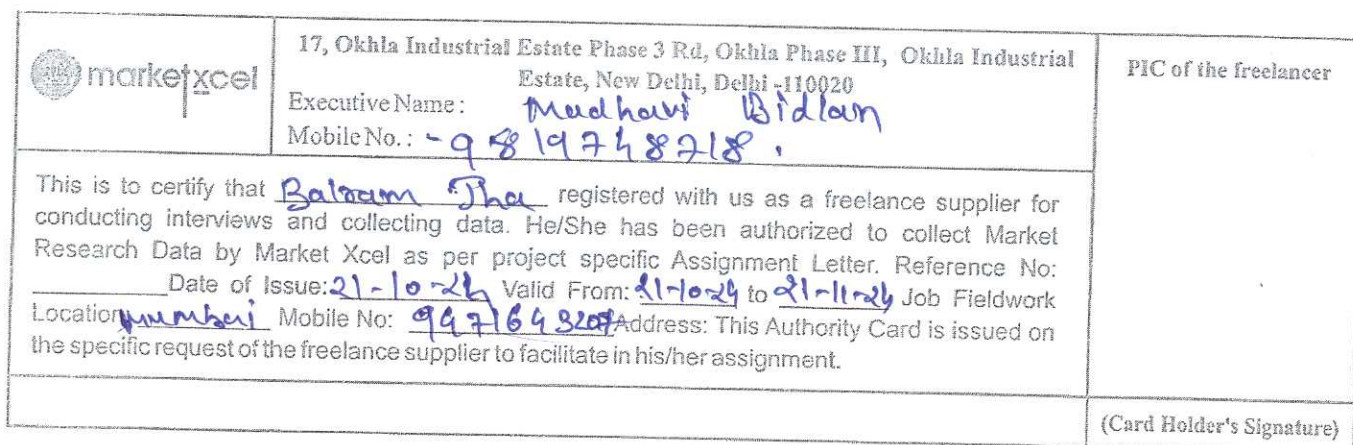 marketxcel
17, Okhla Industrial Estate Phase 3 Rd, Okhla Phase III, Okhla Industrial
Estate, New Delhi, Delhi -110020
Executive Name : Madhavi Bidlan
Mobile No. : - 9819748718 .
PIC of the freelancer
This is to certify that Balram Jha registered with us as a freelance supplier for
conducting interviews and collecting data. He/She has been authorized to collect Market
Research Data by Market Xcel as per project specific Assignment Letter. Reference No:
Date of Issue: 21-10-24 Valid From: 21-10-24 to 21-11-24 Job Fieldwork
Location Mumbai Mobile No: Address: This Authority Card is issued on
the specific request of the freelance supplier to facilitate in his/her assignment.
(Card Holder's Signature)